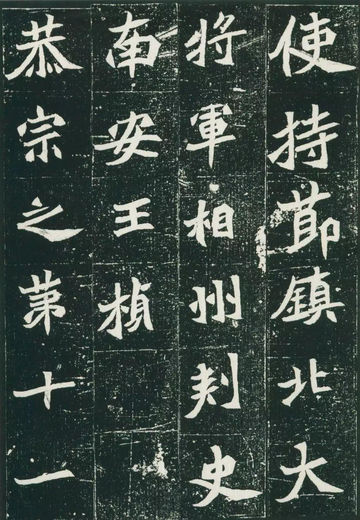 使持莭鎮北大
將軍相州刾史
南安王楨
恭宗之苐十一